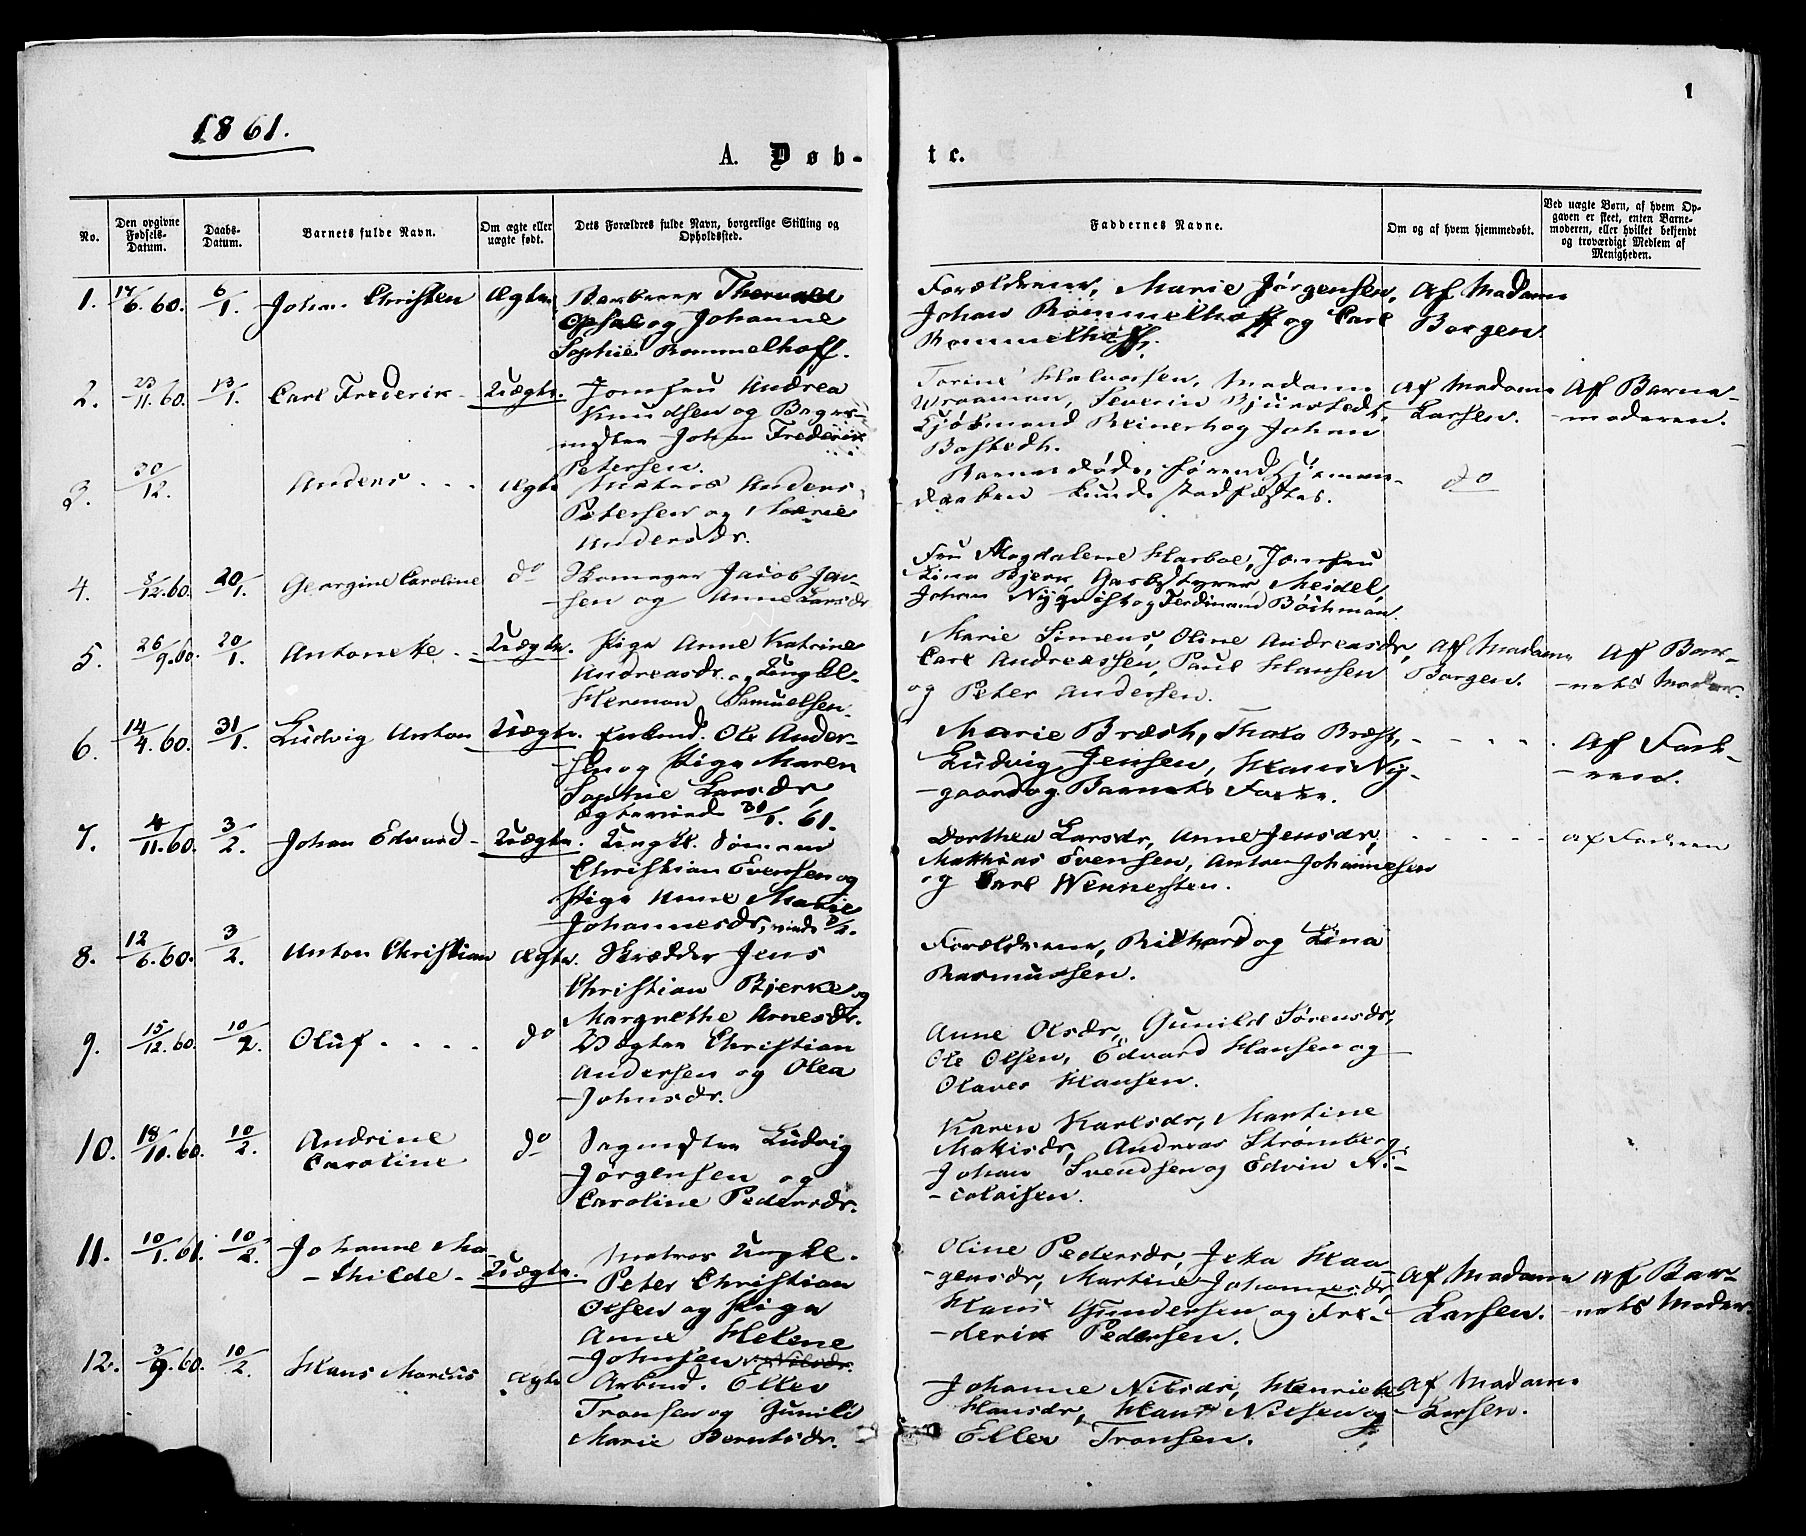 1861.
1
A. Døb-
te.
No.
Den opgivne Fødsels-Datum.
Daabs-Datum.
Barnets fulde Navn.
Om ægte eller uægte født.
Dets Forældres fulde Navn, borgerlige Stilling og Opholdssted.
Faddernes Navne.
Om og af hvem hjemmedøbt.
Ved uægte Børn, af hvem Opgaven er skeet, enten Barnemoderen, eller hvilket bekjendt og troværdigt Medlem af Menigheden.
1. 17/6.60. 6/1. Johan Christen Ægte
Barberer Thorvald
Opsal og Johanne
Sophie Rommelhoff.
Forældrene, Marie Jørgensen,
Johan Rommelhoff og Carl
Rommelhoff.
Af Madam
Borgen.
2. 23/11.60. 13/1. Carl Frederik Uægte.
Jomfru Andrea
Knudsen og Bager-
Johan Frederik
Petersen.
Torine Halvorsen, Madam
Wraaman, Severin Bjurstedt,
Kjøbmand Reinert og Johan
Bostedt.
Af Madam
Larsen.
Af Barne-
-moderen.
3. 30/12. Anders Ægte
Matros Anders
Petersen og Marie
Andersdr.
Barnet døde, førend Hjemme-
daaben kunde stadfæstes.
do
4. 3/12.60. 20/1. Georgine Caroline do
Skomager Jacob Jen-
-sen og Anne Larsdr
Fru Magdalene Harboe, Jomfru
Lina Bjerk, Meidel,
Johan Nyqvist og Ferdinand Böchman.
5. 26/9.60. 20/1. Antonette Uægte.
Pige Anne Katrine
Andreasdr. og Ungkl.
Herman Samuelsen.
Marie Simens, Oline Andreasdr,
Carl Andreassen, Paul Hansen
og Peter Andersen.
Af Madam
Borgen.
Af Bar-
-nets Moder.
6. 14/4.60. 31/1. Ludvig Anton Uægte.
Ole Ander-
sen og Pige Maren
Sophie Larsdr,
Ægteviede 30/1. 61.
Marie Bræst, Thala Bræst,
Ludvig Jensen, Hans Ny-
-gaard og Barnets Fader.
Af Fade-
-ren.
7. 4/11.60. 3/2. Johan Edvard Uægte.
Ungk. Sømand
Christian Evensen og
Pige Anne Marie
Johannesdr, viede 3/2.
Dorthea Larsdr, Anne Jensdr,
Mathias Evensen, Anton Johannesen
og Carl Wennersten.
Af Faderen
8. 12/6.60. 3/2. Anton Christian Ægte.
Skrædder Jens
Christian Bjerke og
Margrethe Arnesdr.
Forældrene, Richard og Lina
Rasmussen.
9. 15/12.60. 10/2. Oluf do
Vægter Christian
Andersen og Olea
Johnsdr.
Anne Olsdr, Gunild Sørensdr,
Ole Olsen, Edvard Hansen og
Olaves Hansen.
10. 18/10.60. 10/2. Andrine
Caroline do
Sagmester Ludvig
Jørgensen og
Caroline Pedersdr.
Karen Karlsdr, Martine
Mathisdr, Andreas Strømberg,
Johan Svendsen og Edvin Ni-
-colaisen.
11. 10/1.61. 10/2. Johanne Ma-
-thilde Uægte.
Matros Ungkl.
Peter Christian
Olsen og Pige
Anne Helene
Johnsen
Oline Pedersdr, Jeka Haa-
-gensdr, Martine Johannesdr,
Hans Gundersen og Fre-
-derik Pedersen.
Af Madam
Larsen.
Af Bar-
-nets Moder.
12. 3/9.60. 10/2. Hans Marius Ægte
Arbmd. Ellev
Tronsen og Gunild
Marie Berntsdr.
Johanne Nilsdr, Henriette
Hansdr, Hans Nilsen og
Ellev Tronsen.
Af Madam
Larsen.